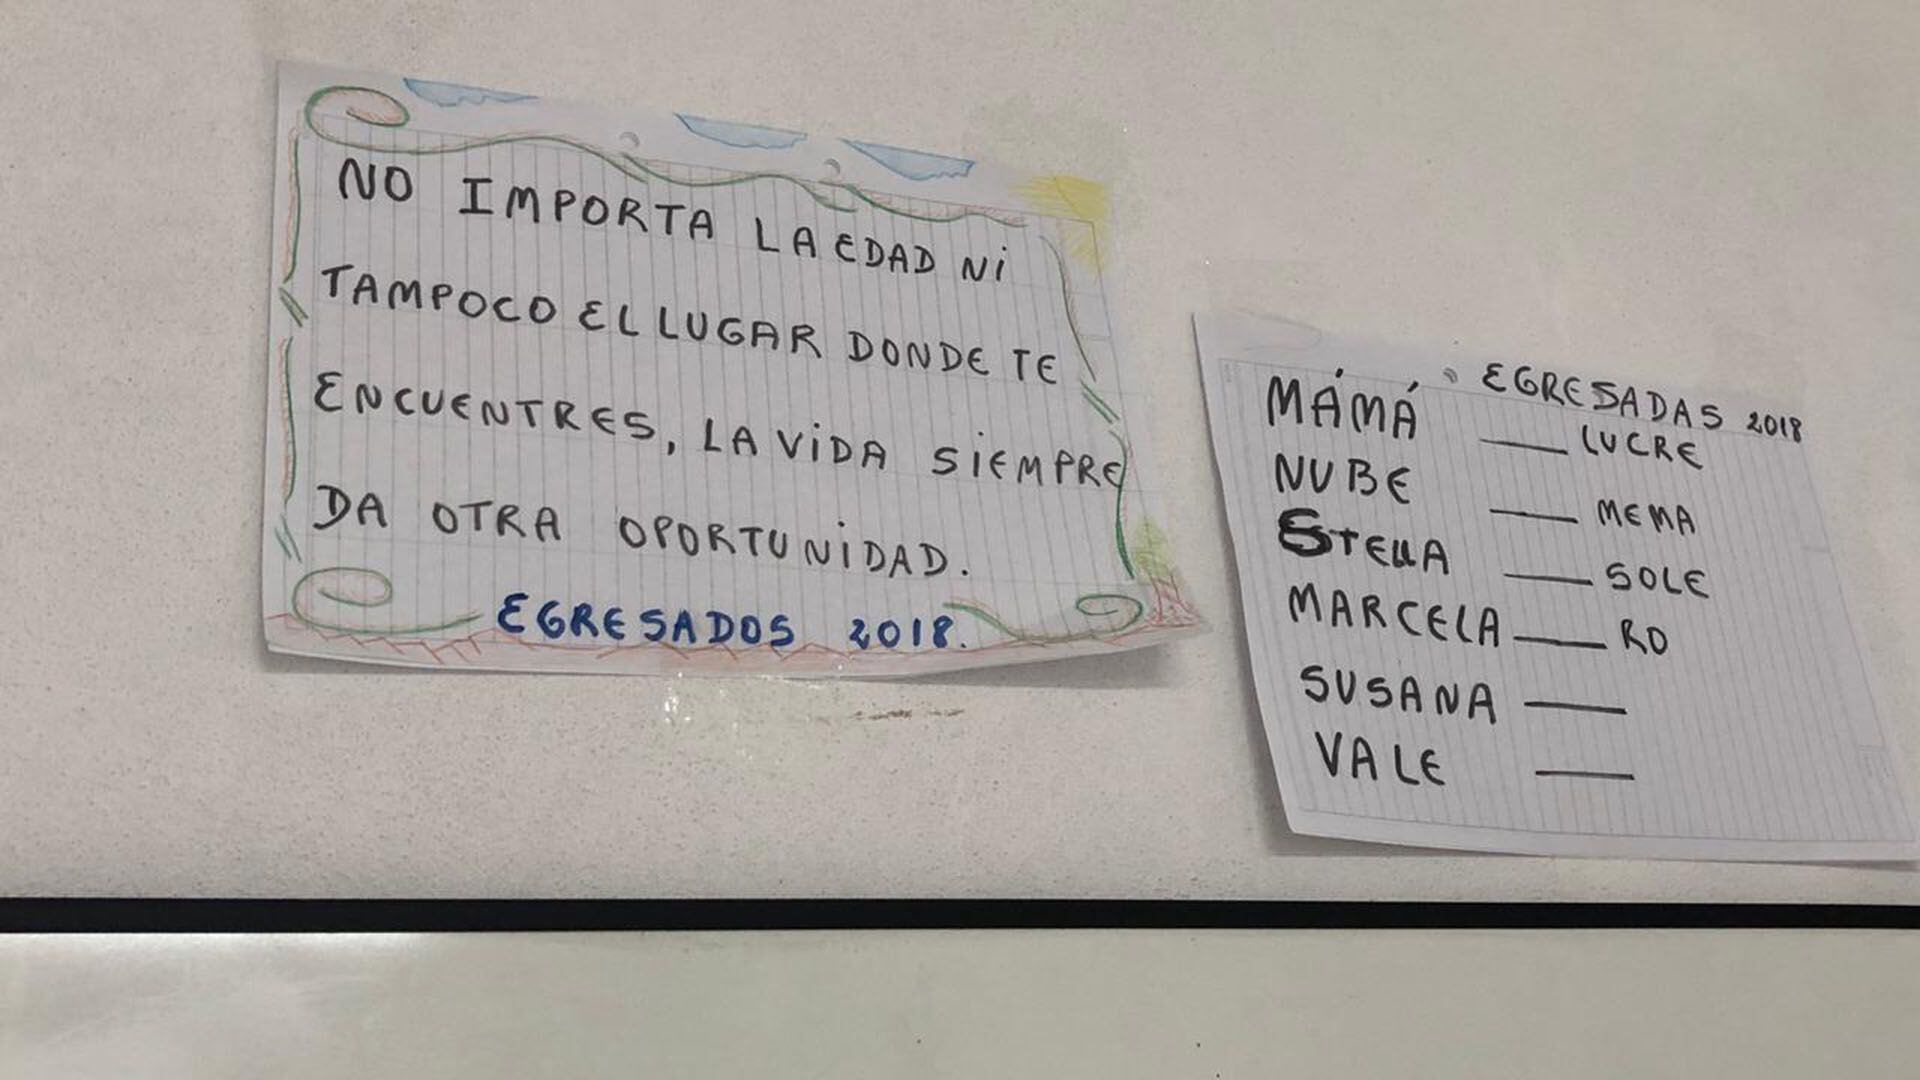 NO IMPORTA LA EDAD Ni
TAMPOCO EL LUGAR DONDE TE
ENCUENTRES, LA ViDA SiEMPRE
DA OTRA OPORTUNiDAD.
EGRESADOS 2018.
EGRESADAS 2018
MÁMÁ — LUCRE
NUBE — MEMA
STELLA — SOLE
MARCELA — RO
SUSANA —
VALE —